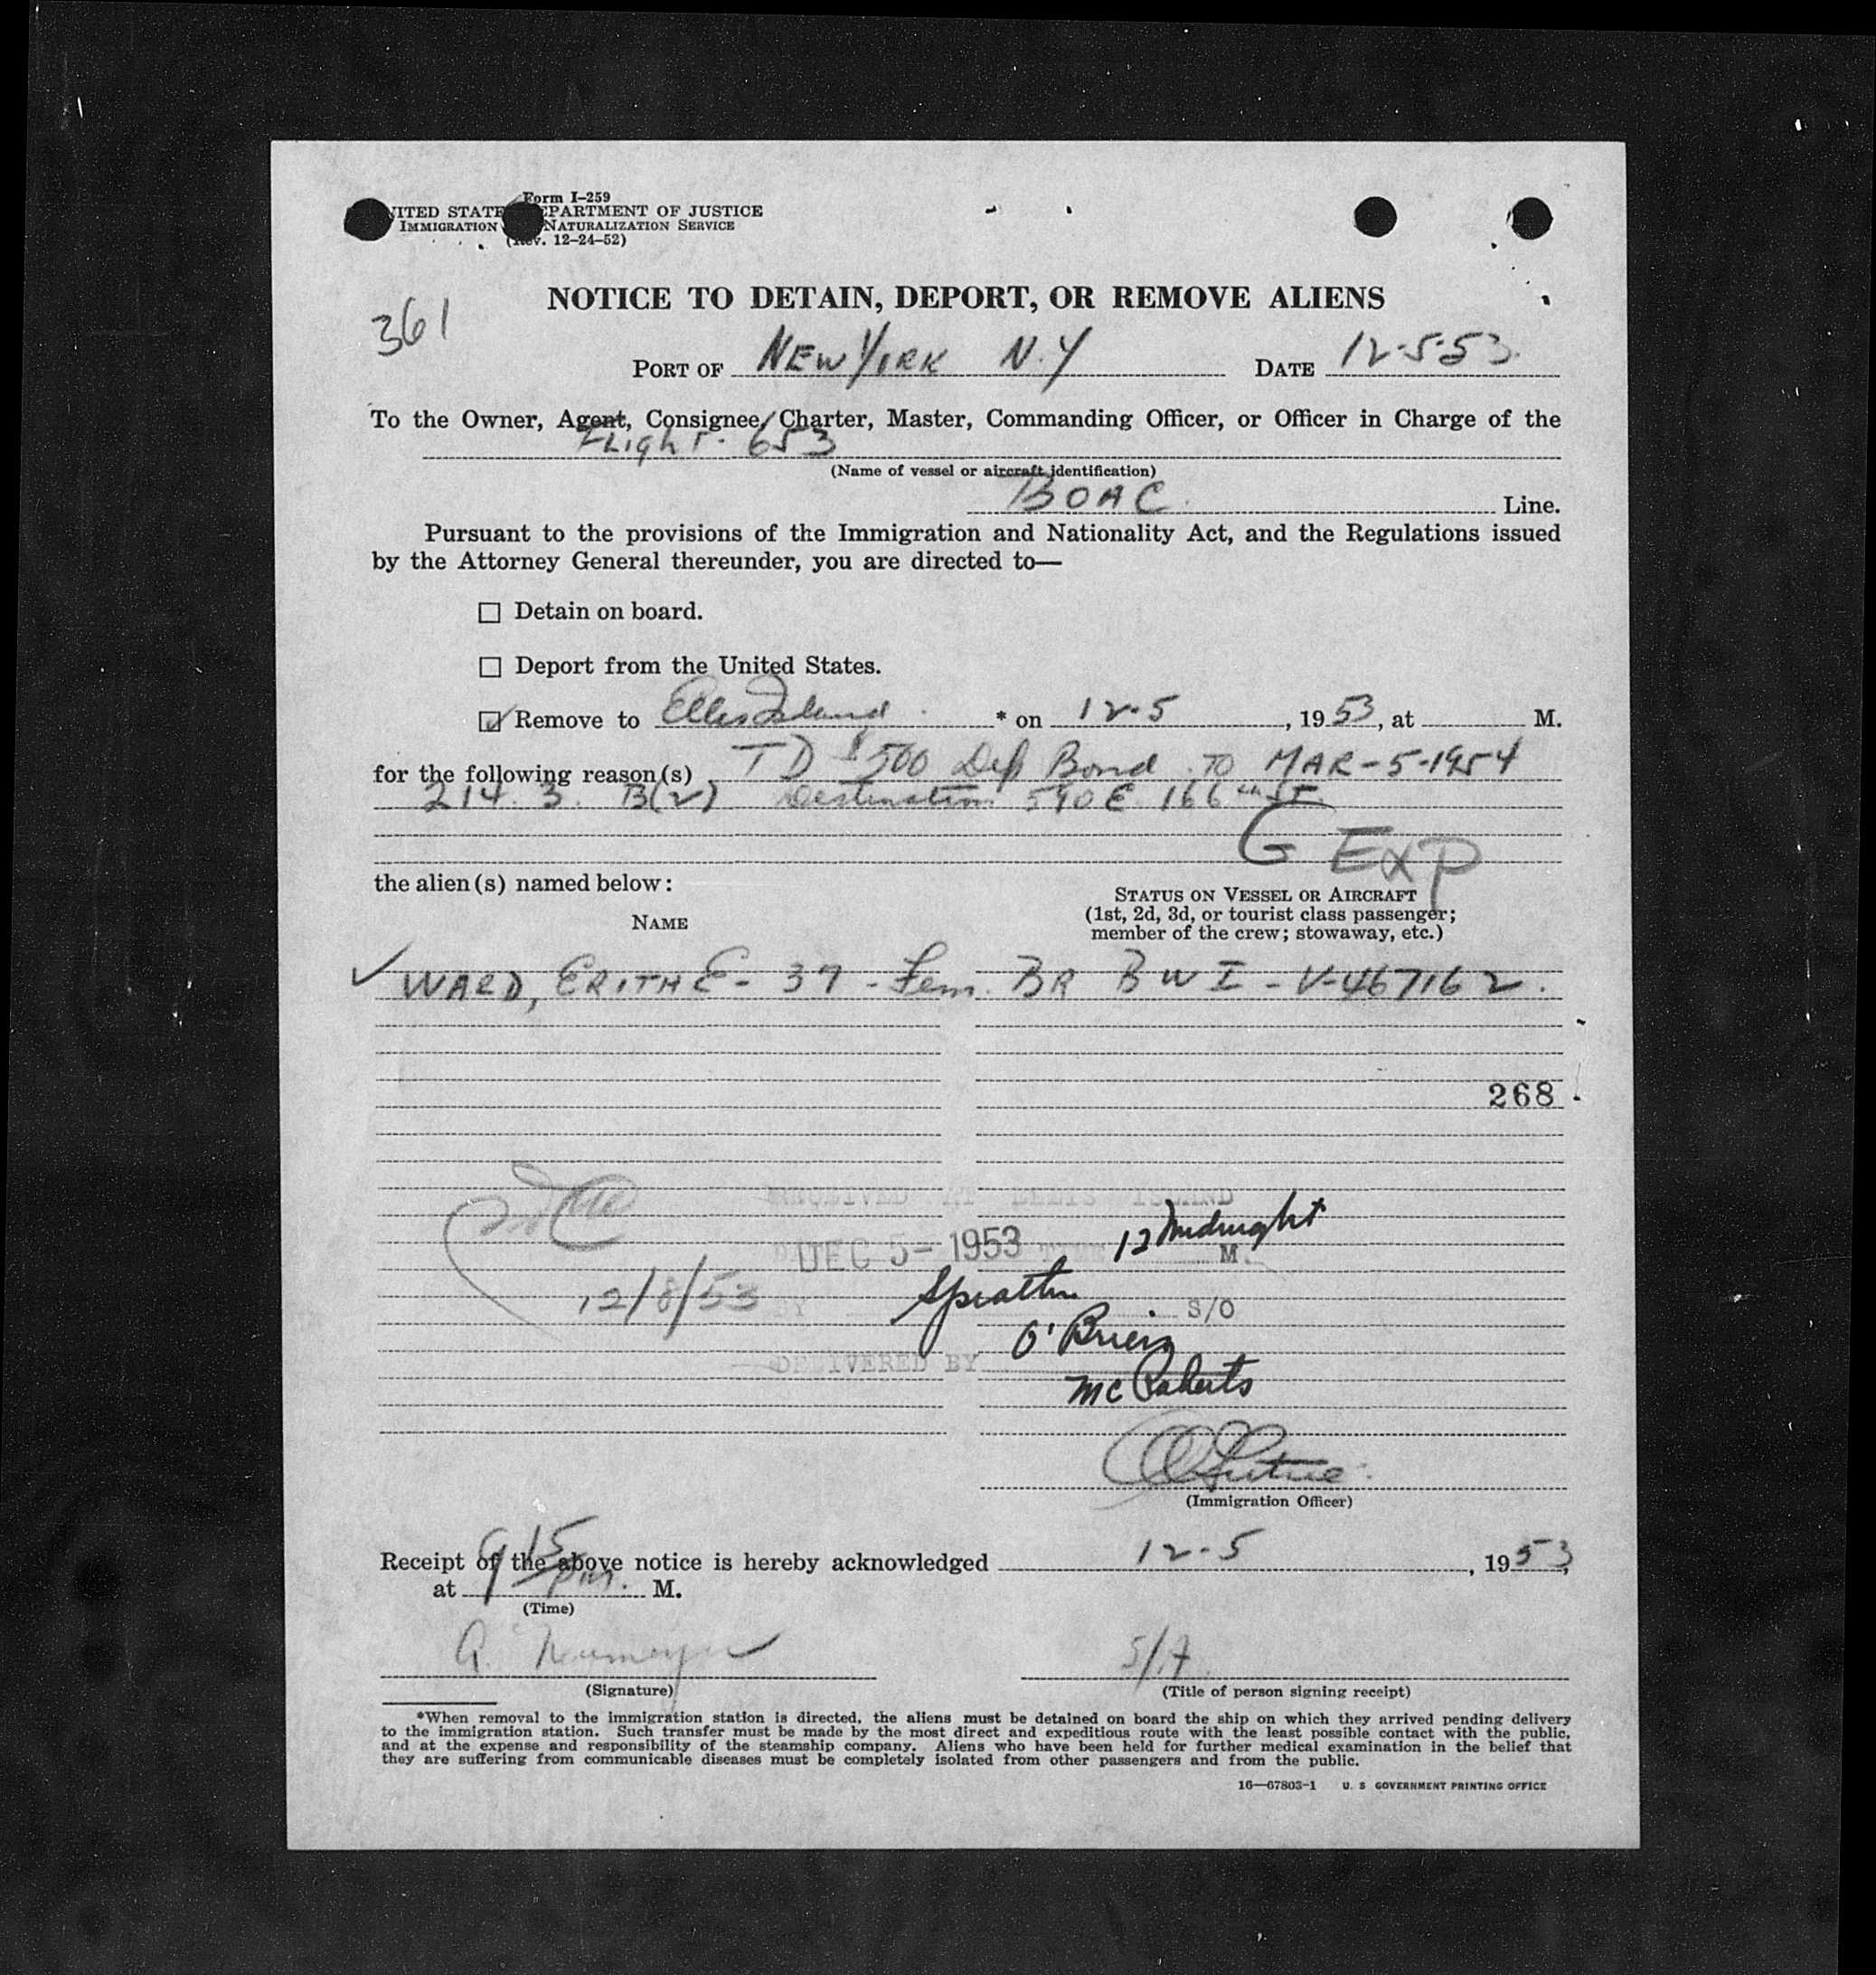 Form I-259
UNITED STATES DEPARTMENT OF JUSTICE
IMMIGRATION NATURALIZATION SERVICE
(Rev. 12-24-52)
NOTICE TO DETAIN, DEPORT, OR REMOVE ALIENS
361
PORT OF NEW YORK N.Y DATE 12-5-53.
To the Owner, Agent, Consignee, Charter, Master, Commanding Officer, or Officer in Charge of the
FLight. 653
(Name of vessel or aircraft identification)
BOAC Line.
Pursuant to the provisions of the Immigration and Nationality Act, and the Regulations issued
by the Attorney General thereunder, you are directed to—
☐ Detain on board.
☐ Deport from the United States.
☑ Remove to Ellis Island * on 12-5, 1953, at M.
for the following reason(s) TD $500 Dep Bond TO MAR-5-1954
214. 3. B(2) Destination 590 E 166th ST
G EXP
the alien(s) named below:
STATUS ON VESSEL OR AIRCRAFT
(1st, 2d, 3d, or tourist class passenger;
member of the crew; stowaway, etc.)
NAME
✓ WARD, ERITH E - 37 - Fem. BR BWI - V-467162.
268
RECEIVED AT ELLIS ISLAND
DEC 5 - 1953 TIME 12 Midnight M.
12/8/53 BY S/O
O'Brien
DELIVERED BY
McRoberts
(Immigration Officer)
Receipt of the above notice is hereby acknowledged 12-5, 1953,
at 9 15 pm. M.
(Time)
S/A
(Signature) (Title of person signing receipt)
*When removal to the immigration station is directed, the aliens must be detained on board the ship on which they arrived pending delivery
to the immigration station. Such transfer must be made by the most direct and expeditious route with the least possible contact with the public,
and at the expense and responsibility of the steamship company. Aliens who have been held for further medical examination in the belief that
they are suffering from communicable diseases must be completely isolated from other passengers and from the public.
16—67803-1 U. S GOVERNMENT PRINTING OFFICE